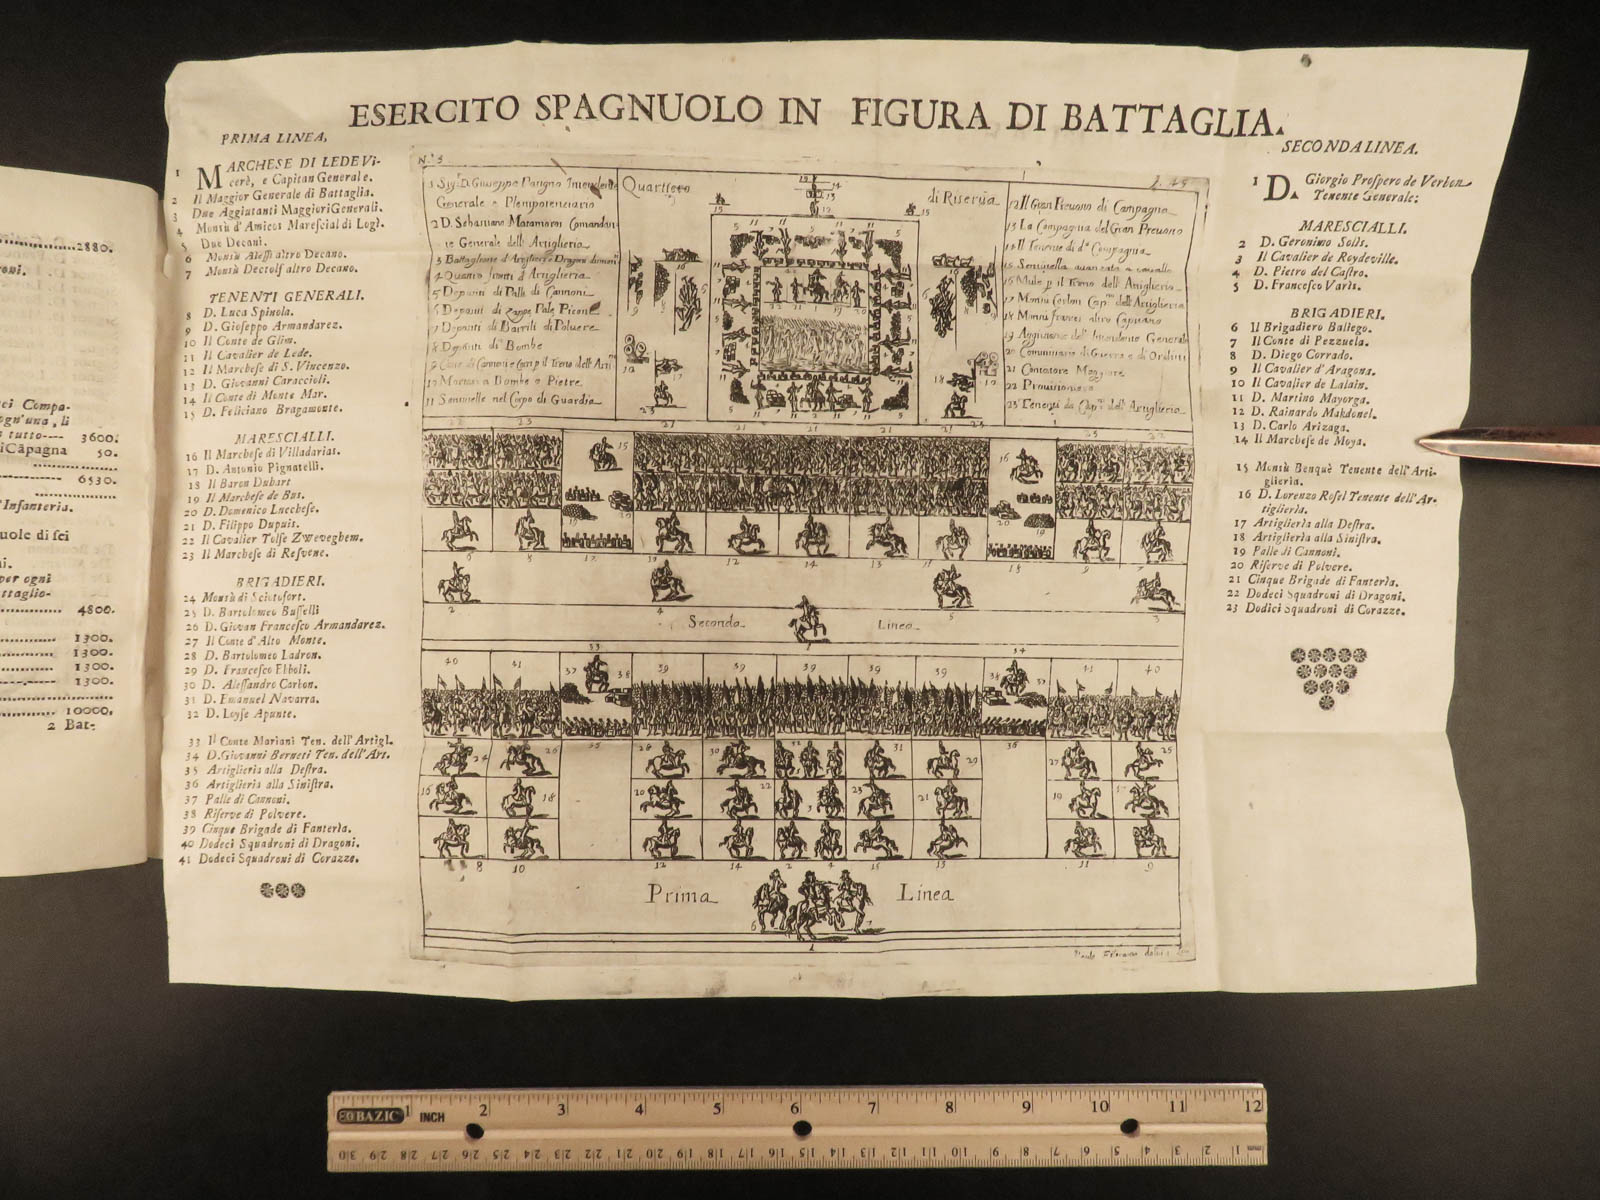 ESERCITO SPAGNUOLO IN FIGURA DI BATTAGLIA.
PRIMA LINEA,
1 MARCHESE DI LEDE Vi-
cerè, e Capitan Generale.
2 Il Maggior Generale di Battaglia.
3 Due Aggiutanti Maggiori Generali.
4 Montù d'Amicot Mareſcial di Logl.
5 Due Decani.
6 Montù Aleſſi altro Decano.
7 Montù Dectolſ altro Decano.
TENENTI GENERALI.
8 D. Luca Spinola.
9 D. Gioſeppo Armandarez.
10 Il Conte de Glim.
11 Il Cavalier de Lede.
12 Il Marcheſe di S. Vincenzo.
13 D. Giovanni Caraccioli.
14 Il Conte di Monte Mar.
15 D. Feliciano Bragamonte.
MARESCIALLI.
16 Il Marcheſe di Villadarias.
17 D. Antonio Pignatelli.
18 Il Baron Duhart
19 Il Marcheſe de Bus.
20 D. Domenico Lucchese.
21 D. Filippo Dupuis.
22 Il Cavalier Tolſe Zweveghem.
23 Il Marcheſe di Reſvene.
BRIGADIERI.
24 Montù di Sciotofort.
25 D. Bartolomeo Buſſelli
26 D. Giovan Franceſco Armandarez.
27 Il Conte d'Alto Monte.
28 D. Bartolomeo Ladron.
29 D. Franceſco Eboli.
30 D. Aleſſandro Carbon.
31 D. Emanuel Navarra.
32 D. Loyſe Apunte.
33 Il Conte Mariani Ten. dell'Artigl.
34 D. Giovanni Berneti Ten. dell'Art.
35 Artiglieria alla Deſtra.
36 Artiglieria alla Siniſtra.
37 Palle di Cannoni.
38 Riſerve di Polvere.
39 Cinque Brigade di Fanterìa.
40 Dodeci Squadroni di Dragoni.
41 Dodeci Squadroni di Corazze.
N.º 3
1 Sig.r D. Giuseppe Patigno Intendente
Generale e Plenipotenciario
2 D. Sebastiano Matamoros Comandan
te Generale dell' Artiglieria
3 Battaglione d'Artiglieri e Dragoni
4 Quattro fronti d'Artiglieria
5 Depositi di Palle di Cannoni
6 Depositi di Zappe Pale Picone
7 Depositi di Barrili di Polvere
8 Depositi di Bombe
10 Mortari a Bombe e Pietre
11 Sentinelle nel Corpo di Guardia
Quartiero di Riserua
12 Il Gran Preuosto di Campagna
13 La Compagnia del Gran Preuosto
14 Il Tenente di d.a Compagnia
15 Sentinella auanzata a cauallo
16 Mule p il Treno dell' Artiglieria
17 Monsu Corlon Cap.no dell'Artiglieria
18 altro Capitano
19 dell' Intendente Generale
20 Commissario di Guerra e di Ordini
21 Contatore Maggiore
22
23 Tenenti da Cap.ni dell' Artiglieria
Seconda Linea
Prima Linea
SECONDA LINEA.
1 D. Giorgio Proſpero de Verbon
Tenente Generale:
MARESCIALLI.
2 D. Geronimo Solis.
3 Il Cavalier de Roydeville.
4 D. Pietro del Caſtro.
5 D. Franceſco Varìs.
BRIGADIERI.
6 Il Brigadiero Ballego.
7 Il Conte di Pezzuela.
8 D. Diego Corrado.
9 Il Cavalier d'Aragona.
10 Il Cavalier de Lalain.
11 D. Martino Mayorga.
12 D. Rainardo Makdonel.
13 D. Carlo Arizaga.
14 Il Marcheſe de Moya.
15 Montù Benquè Tenente dell'Arti-
glierìa.
16 D. Lorenzo Roſel Tenente dell'Ar-
tiglierìa.
17 Artiglierìa alla Deſtra.
18 Artiglierìa alla Siniſtra.
19 Palle di Cannoni.
20 Riſerve di Polvere.
21 Cinque Brigade di Fanterìa.
22 Dodeci Squadroni di Dragoni.
23 Dodici Squadroni di Corazze.
2880.
oni.
ci Compa-
ogn'una, li
tutto---- 3600.
iCãpagna 50.
6530.
'Infanteria.
uole di ſei
ni.
per ogni
ttaglio-
4800.
1300.
1300.
1300.
1300.
10000.
2 Bat-
BAZIC INCH
1 2 3 4 5 6 7 8 9 10 11 12
30 29 28 27 26 25 24 23 22 21 20 19 18 17 16 15 14 13 12 11 10 9 8 7 6 5 4 3 2 1 mm